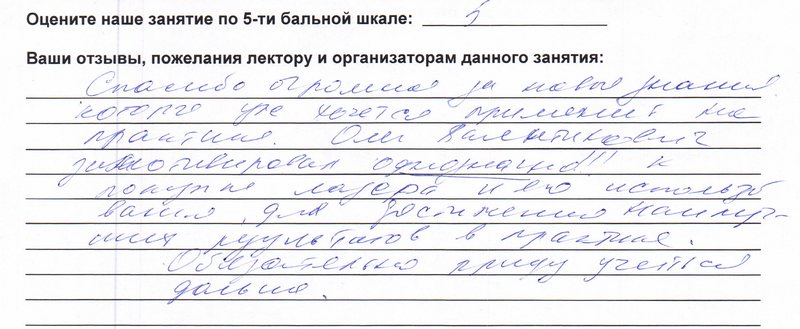 Оцените наше занятие по 5-ти бальной шкале: 5
Ваши отзывы, пожелания лектору и организаторам данного занятия:
Спасибо огромное за новые знания
которые уже хочется применить на
практике. Олег Валентинович
замотивировал однозначно!!! к
покупке лазера и его использо
вания для достижения наилуч-
ших результатов в практике.
Обязательно приду учиться
дальше.